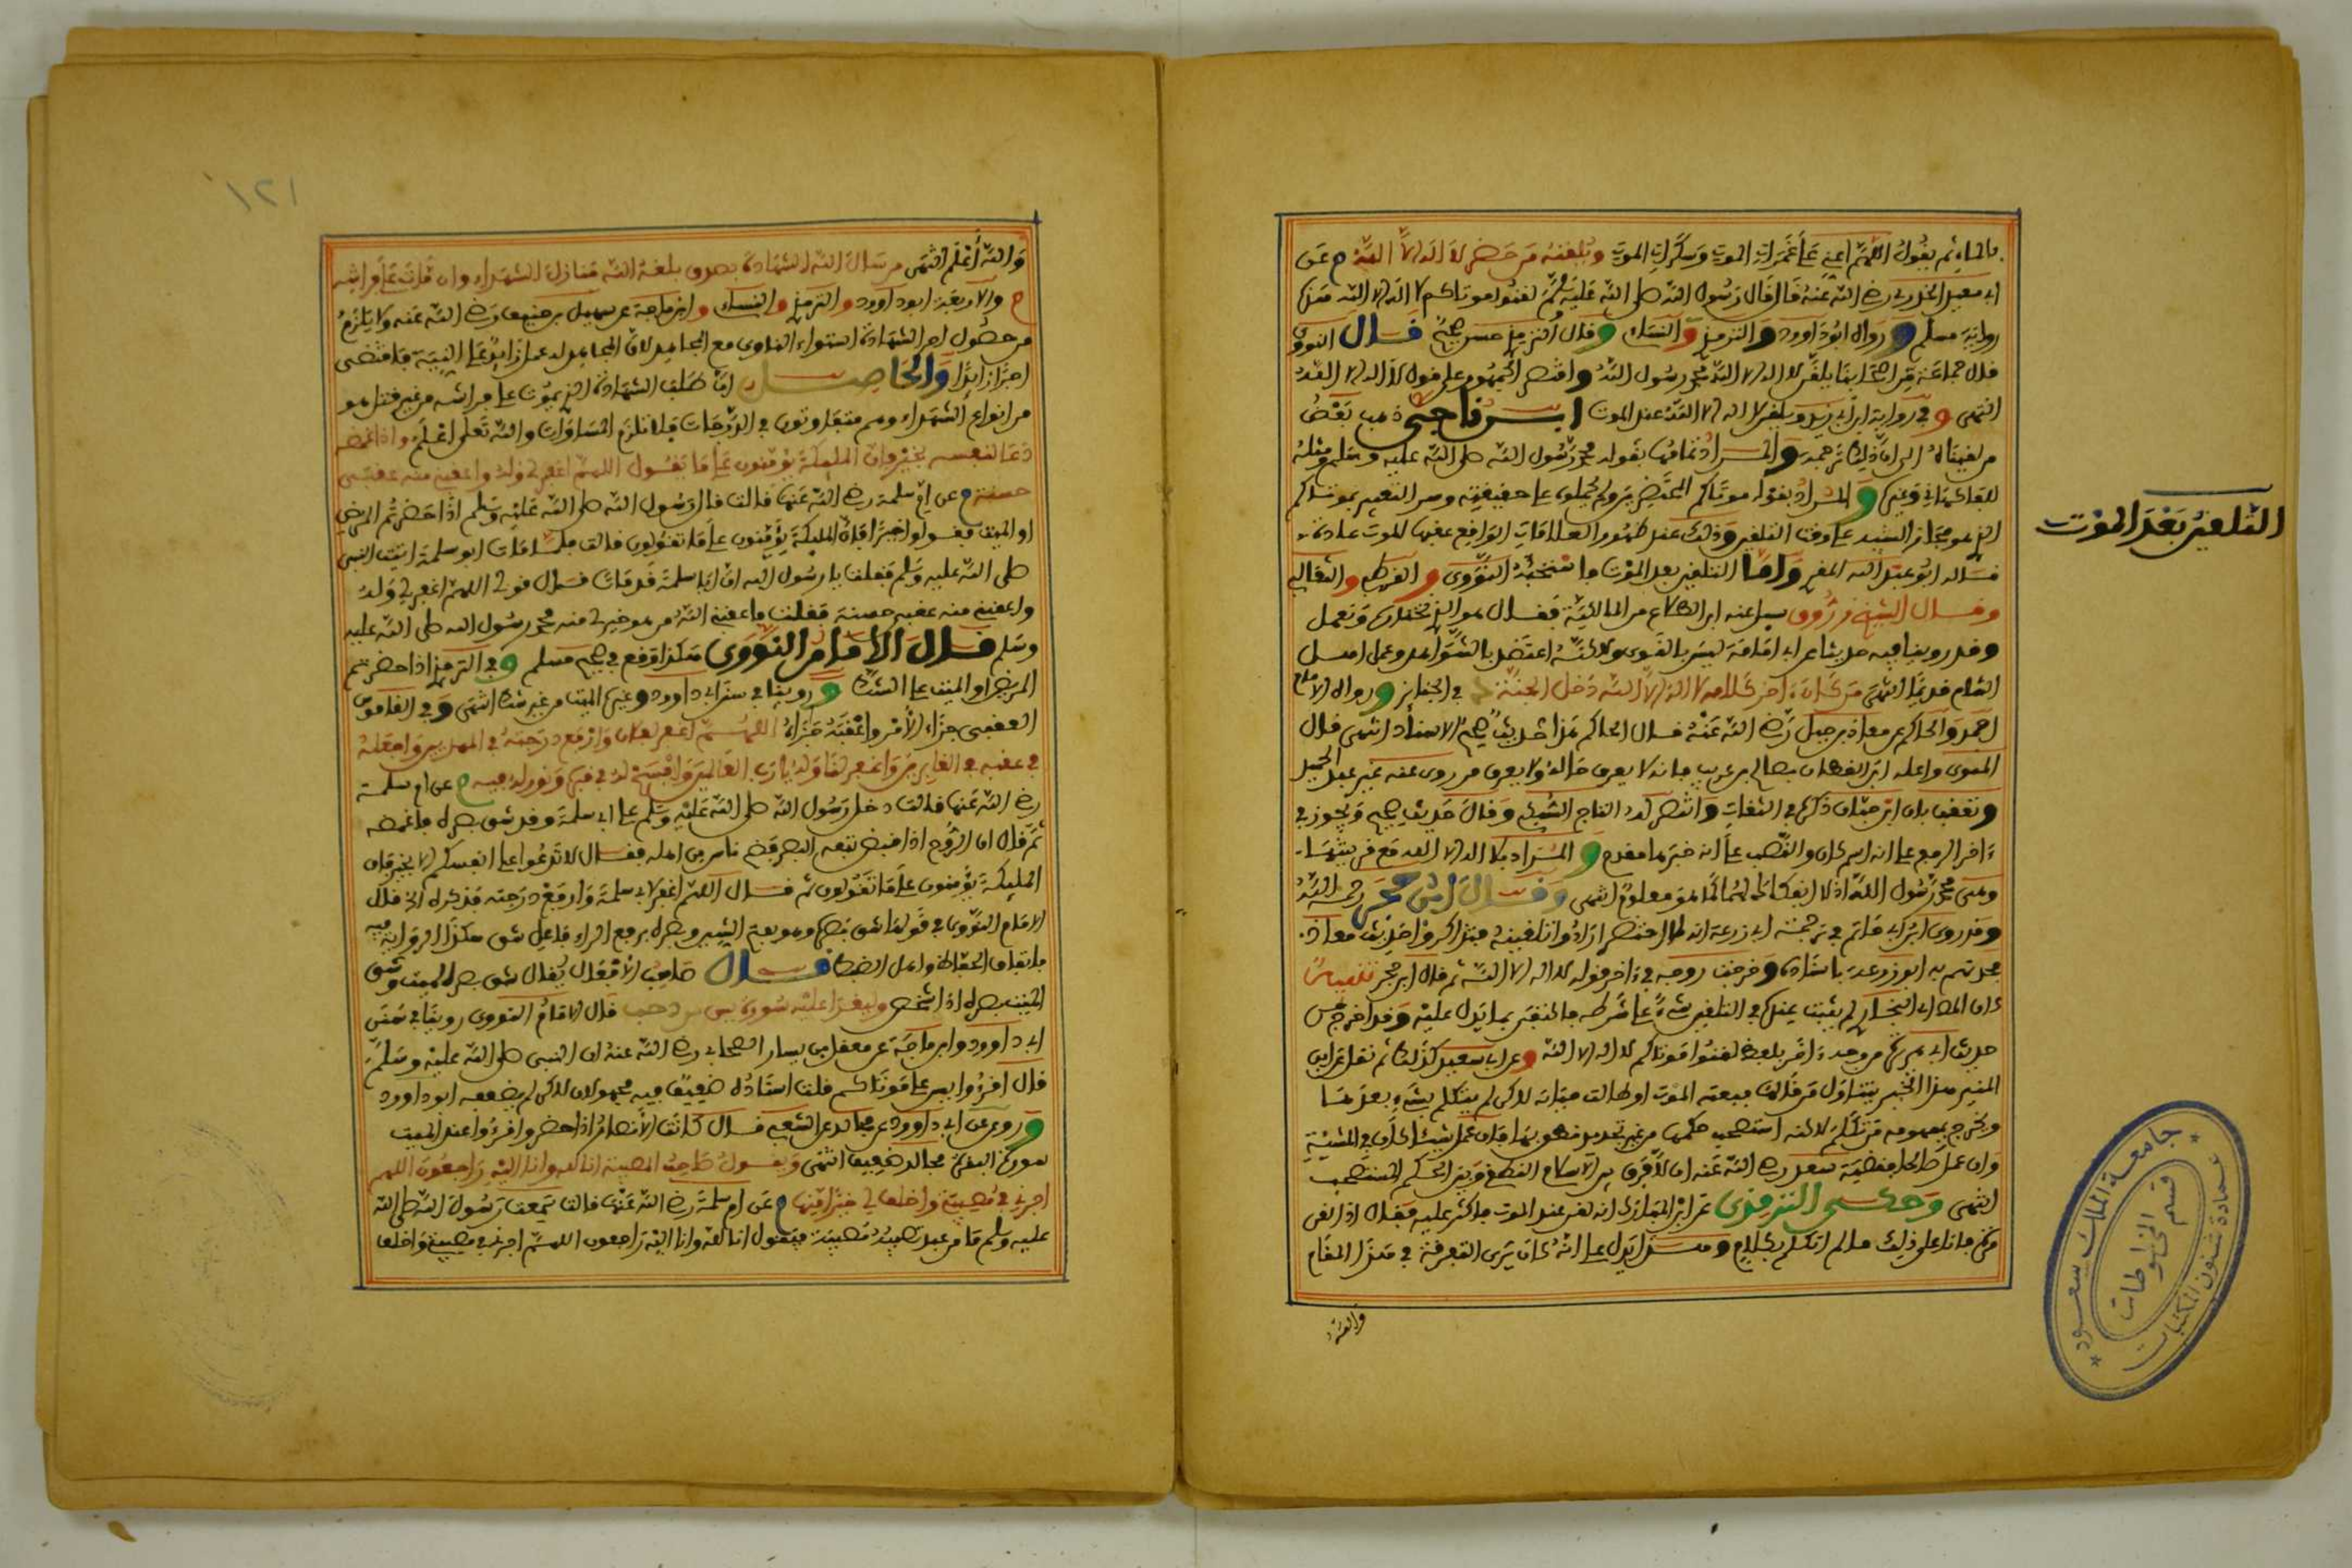 بالماء ثم يقول اللهم اعني على غمرات الموت وسكرات الموت ويلقنه من حضر لا اله الا الله م عن
ابي سعيد الخدري رضي الله عنه قال قال رسول الله صلى الله عليه وسلم لقنوا موتاكم لا اله الا الله هذه
رواية مسلم ورواه ابو داوود والترمذي والنسائي وقال الترمذي حسن صحيح قال النووي
قال جماعة من اصحابنا يلقن لا اله الا الله محمد رسول الله واقتصر الجمهور على قول لا اله الا الله
انتهى وفي رواية ابن ابي زيد ويلقن لا اله الا الله عند الموت ابن ناجي ذهب بعض
من لقيناه الى ان ذلك والمراد تمامها بقوله محمد رسول الله صلى الله عليه وسلم ومثله
للفاكهاني وغيره والمراد بقوله موتاكم المحتضرين ولم يحملوه على حقيقته وسر التعبير بموتاكم
الذي هو مجاز التنبيه على وقت التلقين وذلك عند ظهور العلامات الواقع عقبها الموت عادة
قاله ابو عبد الله واما التلقين بعد الموت فاستحبه النووي والقرطبي والثعالبي
وقال الشيخ زروق سئل عنه ابن الطلاع من المالكية فقال هو الذي نختاره ونعمل
وقد روينا فيه حديثا عن ابي امامة ليس بالقوي ولاكنه اعتضد بالشواهد وعمل اهل
الشام قديما انتهى من كان ءاخر كلامه لا اله الا الله دخل الجنة د في الجنائز ورواه الامام
احمد والحاكم عن معاذ بن جبل رضي الله عنه قال الحاكم هذا حديث صحيح الاسناد انتهى قال
المناوي واعله ابن القطان بصالح بن عريب فانه لا يعرف حاله ولا يعرف من روى عنه غير عبد الحميد
وتعقب بان ابن حبان ذكره في الثقات وانتصر له التاج السبكي وقال حديث صحيح ويجوز في
ءاخر الرفع على انه اسم كان والنصب على انه خبرها مقدم والمراد بلا اله الا الله مع قرينتها
وهي محمد رسول الله اذ لا انفكاك لهما كما هو معلوم انتهى وقال ابن حجر رحمه الله
وقد روى ابن ابي حاتم في ترجمة ابي زرعة انه لما احتضر ارادوا تلقينه فتذاكروا حديث معاذ
فحدثهم به ابو زرعة باسناده وخرجت روحه في ءاخر قوله لا اله الا الله ثم قال ابن حجر تنبيه
كان المص اي البخاري لم يثبت عنده في التلقين شيء على شرطه فاكتفى بما يدل عليه وقد اخرجه من
حديث ابي هريرة من وجه ءاخر بلفظ لقنوا موتاكم لا اله الا الله وعن ابي سعيد كذلك ثم نقل عن ابن
المنير هذا الخبر يتناول من قالها فبغته الموت او طالت حياته لاكن لم يتكلم بشيء بعدها
ويخرج بمفهومه من تكلم لاكنه استصحب حكمها من غير تجديد نطق بها فان عمل سيئا كان في المشيئة
وان عمل صالحا فقضية سعة رحمة الله ان لا فرق بين الاسلام النطقي وبين الحكمي المستصحب
انتهى وحكى الترمذي عن ابن المبارك انه لقن عند الموت فاكثر عليه فقال اذا قلت
مرة فانا على ذلك ما لم اتكلم بكلام وهذا يدل على انه كان يرى التفرقة في هذا المقام
والله
التلقين بعد الموت
جامعة الملك سعود
عمادة شئون المكتبات
قسم المخطوطات
١٢١
والله أعلم انتهى من سال الله الشهادة بصدق بلغه الله منازل الشهداء وان مات على فراشه
م والاربعة ابو داوود والترمذي والنسائي وابن ماجة عن سهيل بن حنيف رضي الله عنه ولا يلزم
من حصول اجر الشهادة استواء الناوي مع المجاهد لان المجاهد له عمل زائد على النية فاقتضى
اجرا زائدا والحاصل ان طالب الشهادة الذي يموت على فراشه من غير قتل هو
من انواع الشهداء وهم متفاوتون في الدرجات فلا تلزم المساوات والله تعلى اعلم واذا غمضه
دعا لنفسه بخير فان الملئكة يؤمنون على ما يقول اللهم اغفر لي وله واعقبني منه عقبى
حسنة م عن ام سلمة رضي الله عنها قالت قال رسول الله صلى الله عليه وسلم اذا حضرتم المريض
او الميت فقولوا خيرا فان الملئكة يؤمنون على ما تقولون قالت فلما مات ابو سلمة اتيت النبي
صلى الله عليه وسلم فقلت يا رسول الله ان ابا سلمة قد مات قال قولي اللهم اغفر لي وله
واعقبني منه عقبى حسنة فقلت فاعقبني الله من هو خير لي منه محمد رسول الله صلى الله عليه
وسلم قال الامام النووي هكذا وقع في صحيح مسلم وفي الترمذي اذا حضرتم
المريض او الميت على الشك وروينا في سنن ابي داوود وغيره الميت من غير شك انتهى وفي القاموس
العقبى جزاء الأمر واعقبه جزاه اللهم اغفر لفلان وارفع درجته في المهديين واخلفه
في عقبه في الغابرين واغفر لنا وله يا رب العالمين وافسح له في قبره ونور له فيه م عن ام سلمة
رضي الله عنها قالت دخل رسول الله صلى الله عليه وسلم على ابي سلمة وقد شق بصره فاغمضه
ثم قال ان الروح اذا قبض تبعه البصر فضج ناس من اهله فقال لا تدعوا على انفسكم الا بخير فان
الملئكة يؤمنون على ما تقولون ثم قال اللهم اغفر لابي سلمة وارفع درجته فذكره الخ قال
الامام النووي في قولها شق بصره هو بفتح الشين وبصره برفع الراء فاعل شق هكذا الرواية فيه
باتفاق الحفاظ واهل الضبط قال صاحب الأفعال يقال شق بصر الميت وشق
الميت بصره اذا شخص وليقرأ عليه سورة يس قال الامام النووي روينا في سنن
ابي داوود وابن ماجة عن معقل بن يسار الصحابي رضي الله عنه ان النبي صلى الله عليه وسلم
قال اقرءوا يس على موتاكم قلت اسناده ضعيف فيه مجهولان لاكن لم يضعفه ابو داوود
وروى ابن ابي داوود عن مجالد عن الشعبي قال كانت الأنصار اذا حضروا قرءوا عند الميت
سورة البقرة مجالد ضعيف انتهى ويقول صاحب المصيبة انا لله وانا اليه راجعون اللهم
اجرني في مصيبتي واخلف لي خيرا منها م عن ام سلمة رضي الله عنها قالت سمعت رسول الله صلى الله
عليه وسلم ما من عبد تصيبه مصيبة فيقول انا لله وانا اليه راجعون اللهم اجرني في مصيبتي واخلف